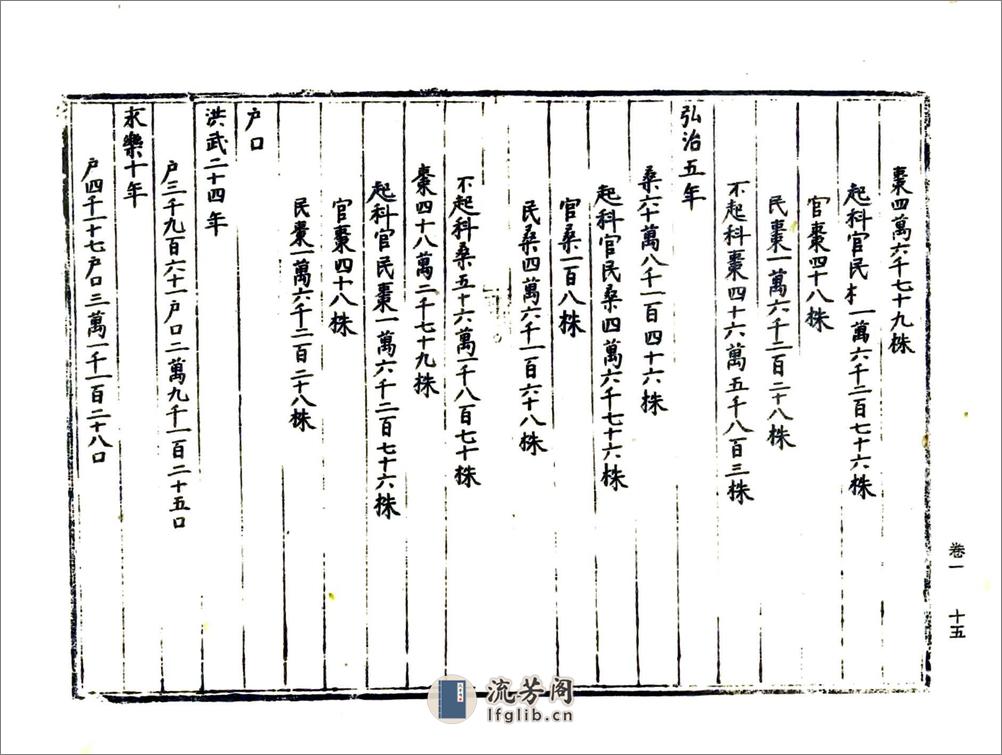 棗四萬六千七十九株
起科官民木一萬六千二百七十六株
官棗四十八株
民棗一萬六千二百二十八株
不起科棗四十六萬五千八百三株
弘治五年
桑六十萬八千一百四十六株
起科官民桑四萬六千七十六株
官桑一百八株
民桑四萬六千一百六十八株
不起科桑五十六萬一千八百七十株
棗四十八萬二千七十九株
起科官民棗一萬六千二百七十六株
官棗四十八株
民棗一萬六千二百二十八株
户口
洪武二十四年
户三千九百六十一户口二萬九千一百二十五口
永樂十年
户四千一十七户口三萬一千一百二十八口
卷一 十五
流芳阁
lfglib.cn